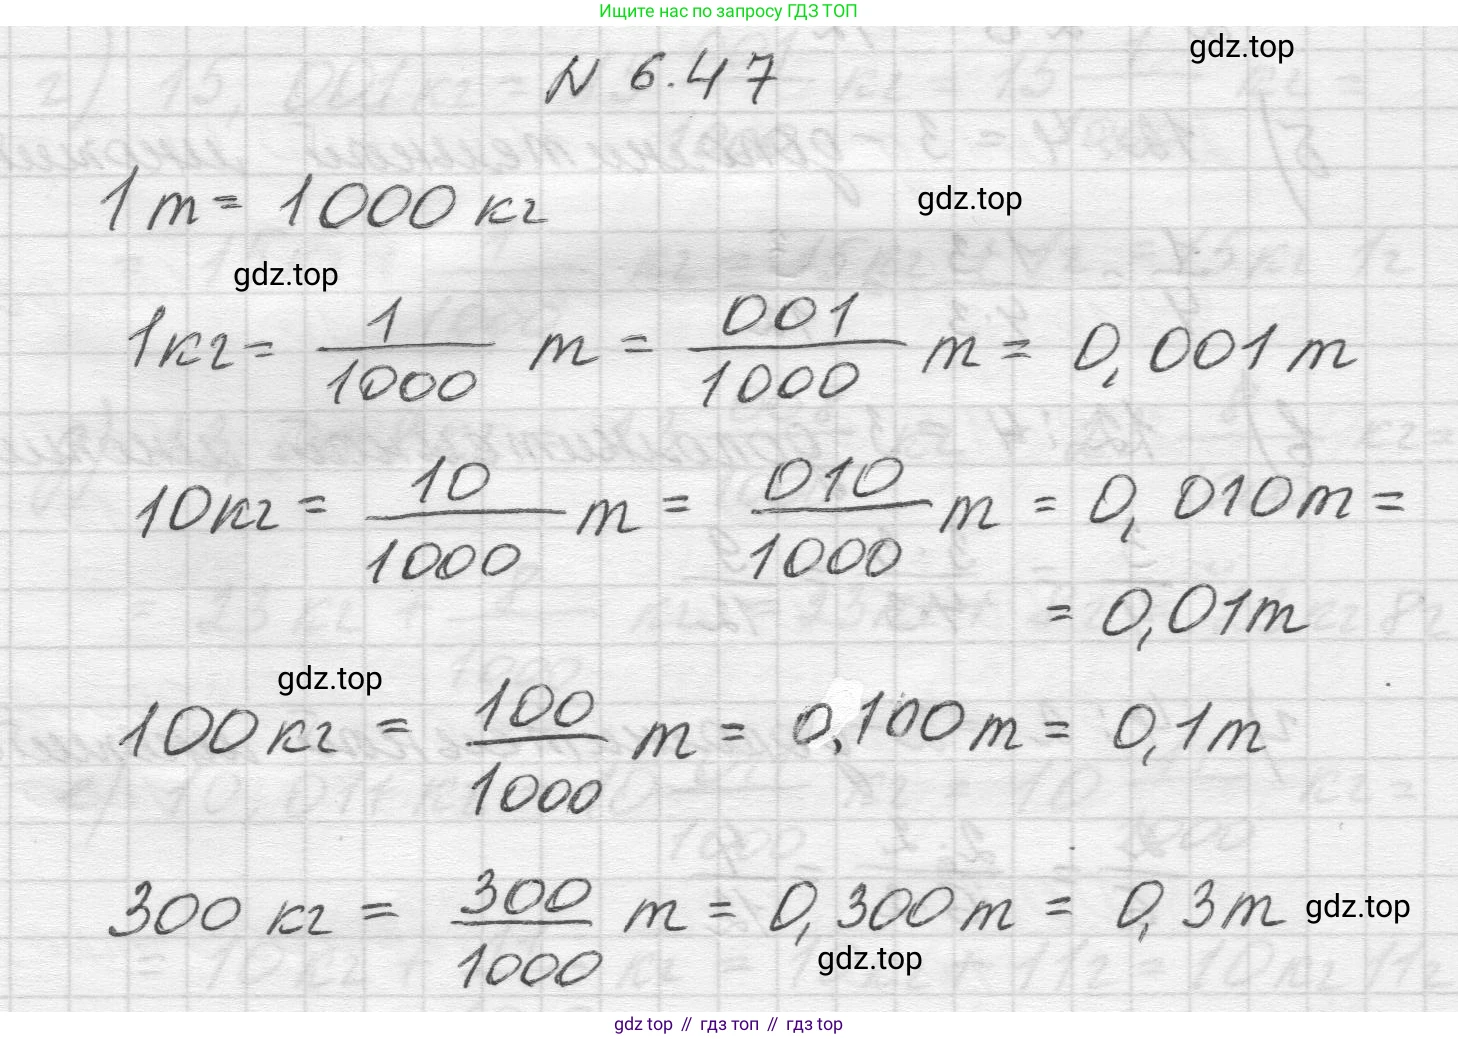 Ищите нас по запросу ГДЗ ТОП
gdz.top
N 6.47
1 т = 1000 кг
gdz.top
gdz.top
1 кг = 1/1000 т = 001/1000 т = 0,001 т
10 кг = 10/1000 т = 010/1000 т = 0,010 т =
= 0,01 т
gdz.top
100 кг = 100/1000 т = 0,100 т = 0,1 т
300 кг = 300/1000 т = 0,300 т = 0,3 т
gdz.top
gdz.top
gdz top // гдз топ // гдз top